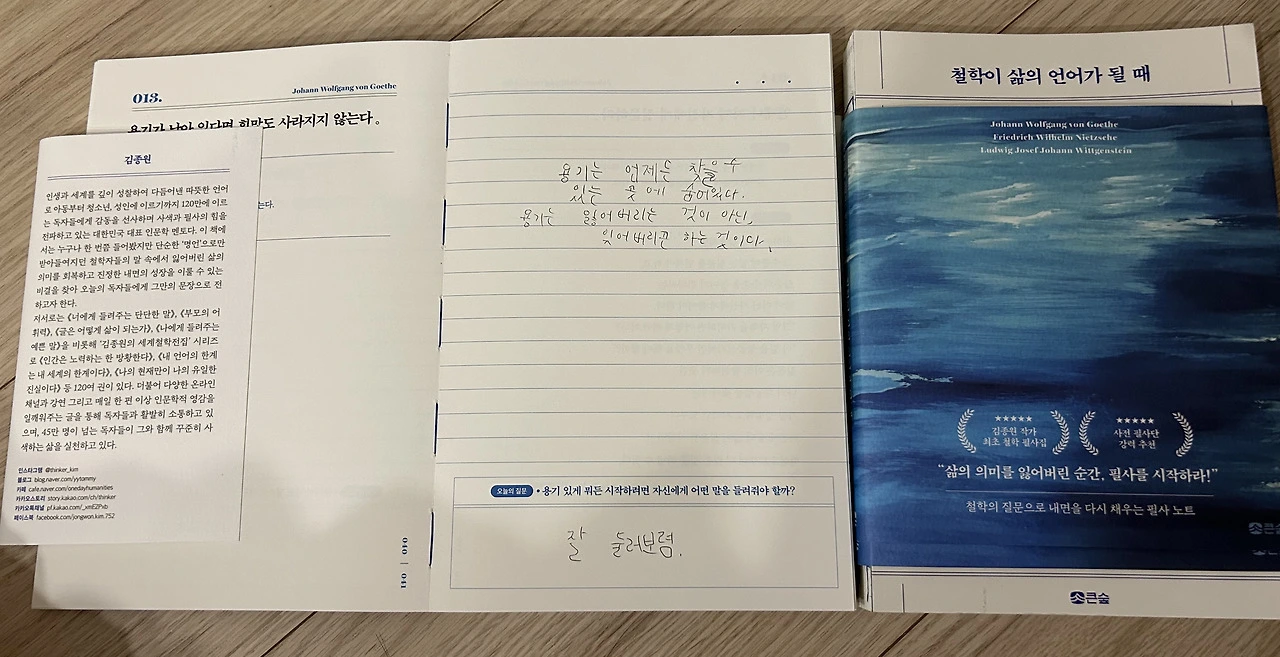 013.
Johann Wolfgang von Goethe
용기가 남아 있다면 희망도 사라지지 않는다.
는다.
김종원
인생과 세계를 깊이 성찰하여 다듬어낸 따뜻한 언어
로 아동부터 청소년, 성인에 이르기까지 120만에 이르
는 독자들에게 감동을 선사하며 사색과 필사의 힘을
전파하고 있는 대한민국 대표 인문학 멘토다. 이 책에
서는 누구나 한 번쯤 들어봤지만 단순한 ‘명언’으로만
받아들여지던 철학자들의 말 속에서 잃어버린 삶의
의미를 회복하고 진정한 내면의 성장을 이룰 수 있는
비결을 찾아 오늘의 독자들에게 그만의 문장으로 전
하고자 한다.
저서로는 《너에게 들려주는 단단한 말》, 《부모의 어
휘력》, 《글은 어떻게 삶이 되는가》, 《나에게 들려주는
예쁜 말》을 비롯해 ‘김종원의 세계철학전집’ 시리즈
로 《인간은 노력하는 한 방황한다》, 《내 언어의 한계
는 내 세계의 한계이다》, 《나의 현재만이 나의 유일한
진실이다》 등 120여 권이 있다. 더불어 다양한 온라인
채널과 강연 그리고 매일 한 편 이상 인문학적 영감을
일깨워주는 글을 통해 독자들과 활발히 소통하고 있
으며, 45만 명이 넘는 독자들이 그와 함께 꾸준히 사
색하는 삶을 실천하고 있다.
인스타그램 @thinker_kim
블로그 blog.naver.com/yytommy
카페 cafe.naver.com/onedayhumanities
카카오스토리 story.kakao.com/ch/thinker
카카오톡채널 pf.kakao.com/_xmEZPxb
페이스북 facebook.com/jongwon.kim.752
040 | 041
용기는 언제든 찾을 수
있는 곳에 숨어있다.
용기는 잃어버리는 것이 아닌,
잊어버리곤 하는 것이다.
오늘의 질문 • 용기 있게 뭐든 시작하려면 자신에게 어떤 말을 들려줘야 할까?
잘 둘러보렴.
철학이 삶의 언어가 될 때
Johann Wolfgang von Goethe
Friedrich Wilhelm Nietzsche
Ludwig Josef Johann Wittgenstein
김종원 작가
최초 철학 필사집
사전 필사단
강력 추천
“삶의 의미를 잃어버린 순간, 필사를 시작하라!”
철학의 질문으로 내면을 다시 채우는 필사 노트
큰숲
큰숲
큰숲